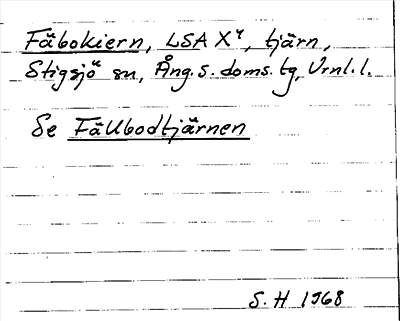 Fäbokiern, LSA X⁴, tjärn,
Stigsjö sn, Ång. s. doms. tg, Vrnl. l.
Se Fällbodtjärnen
S. H 1968